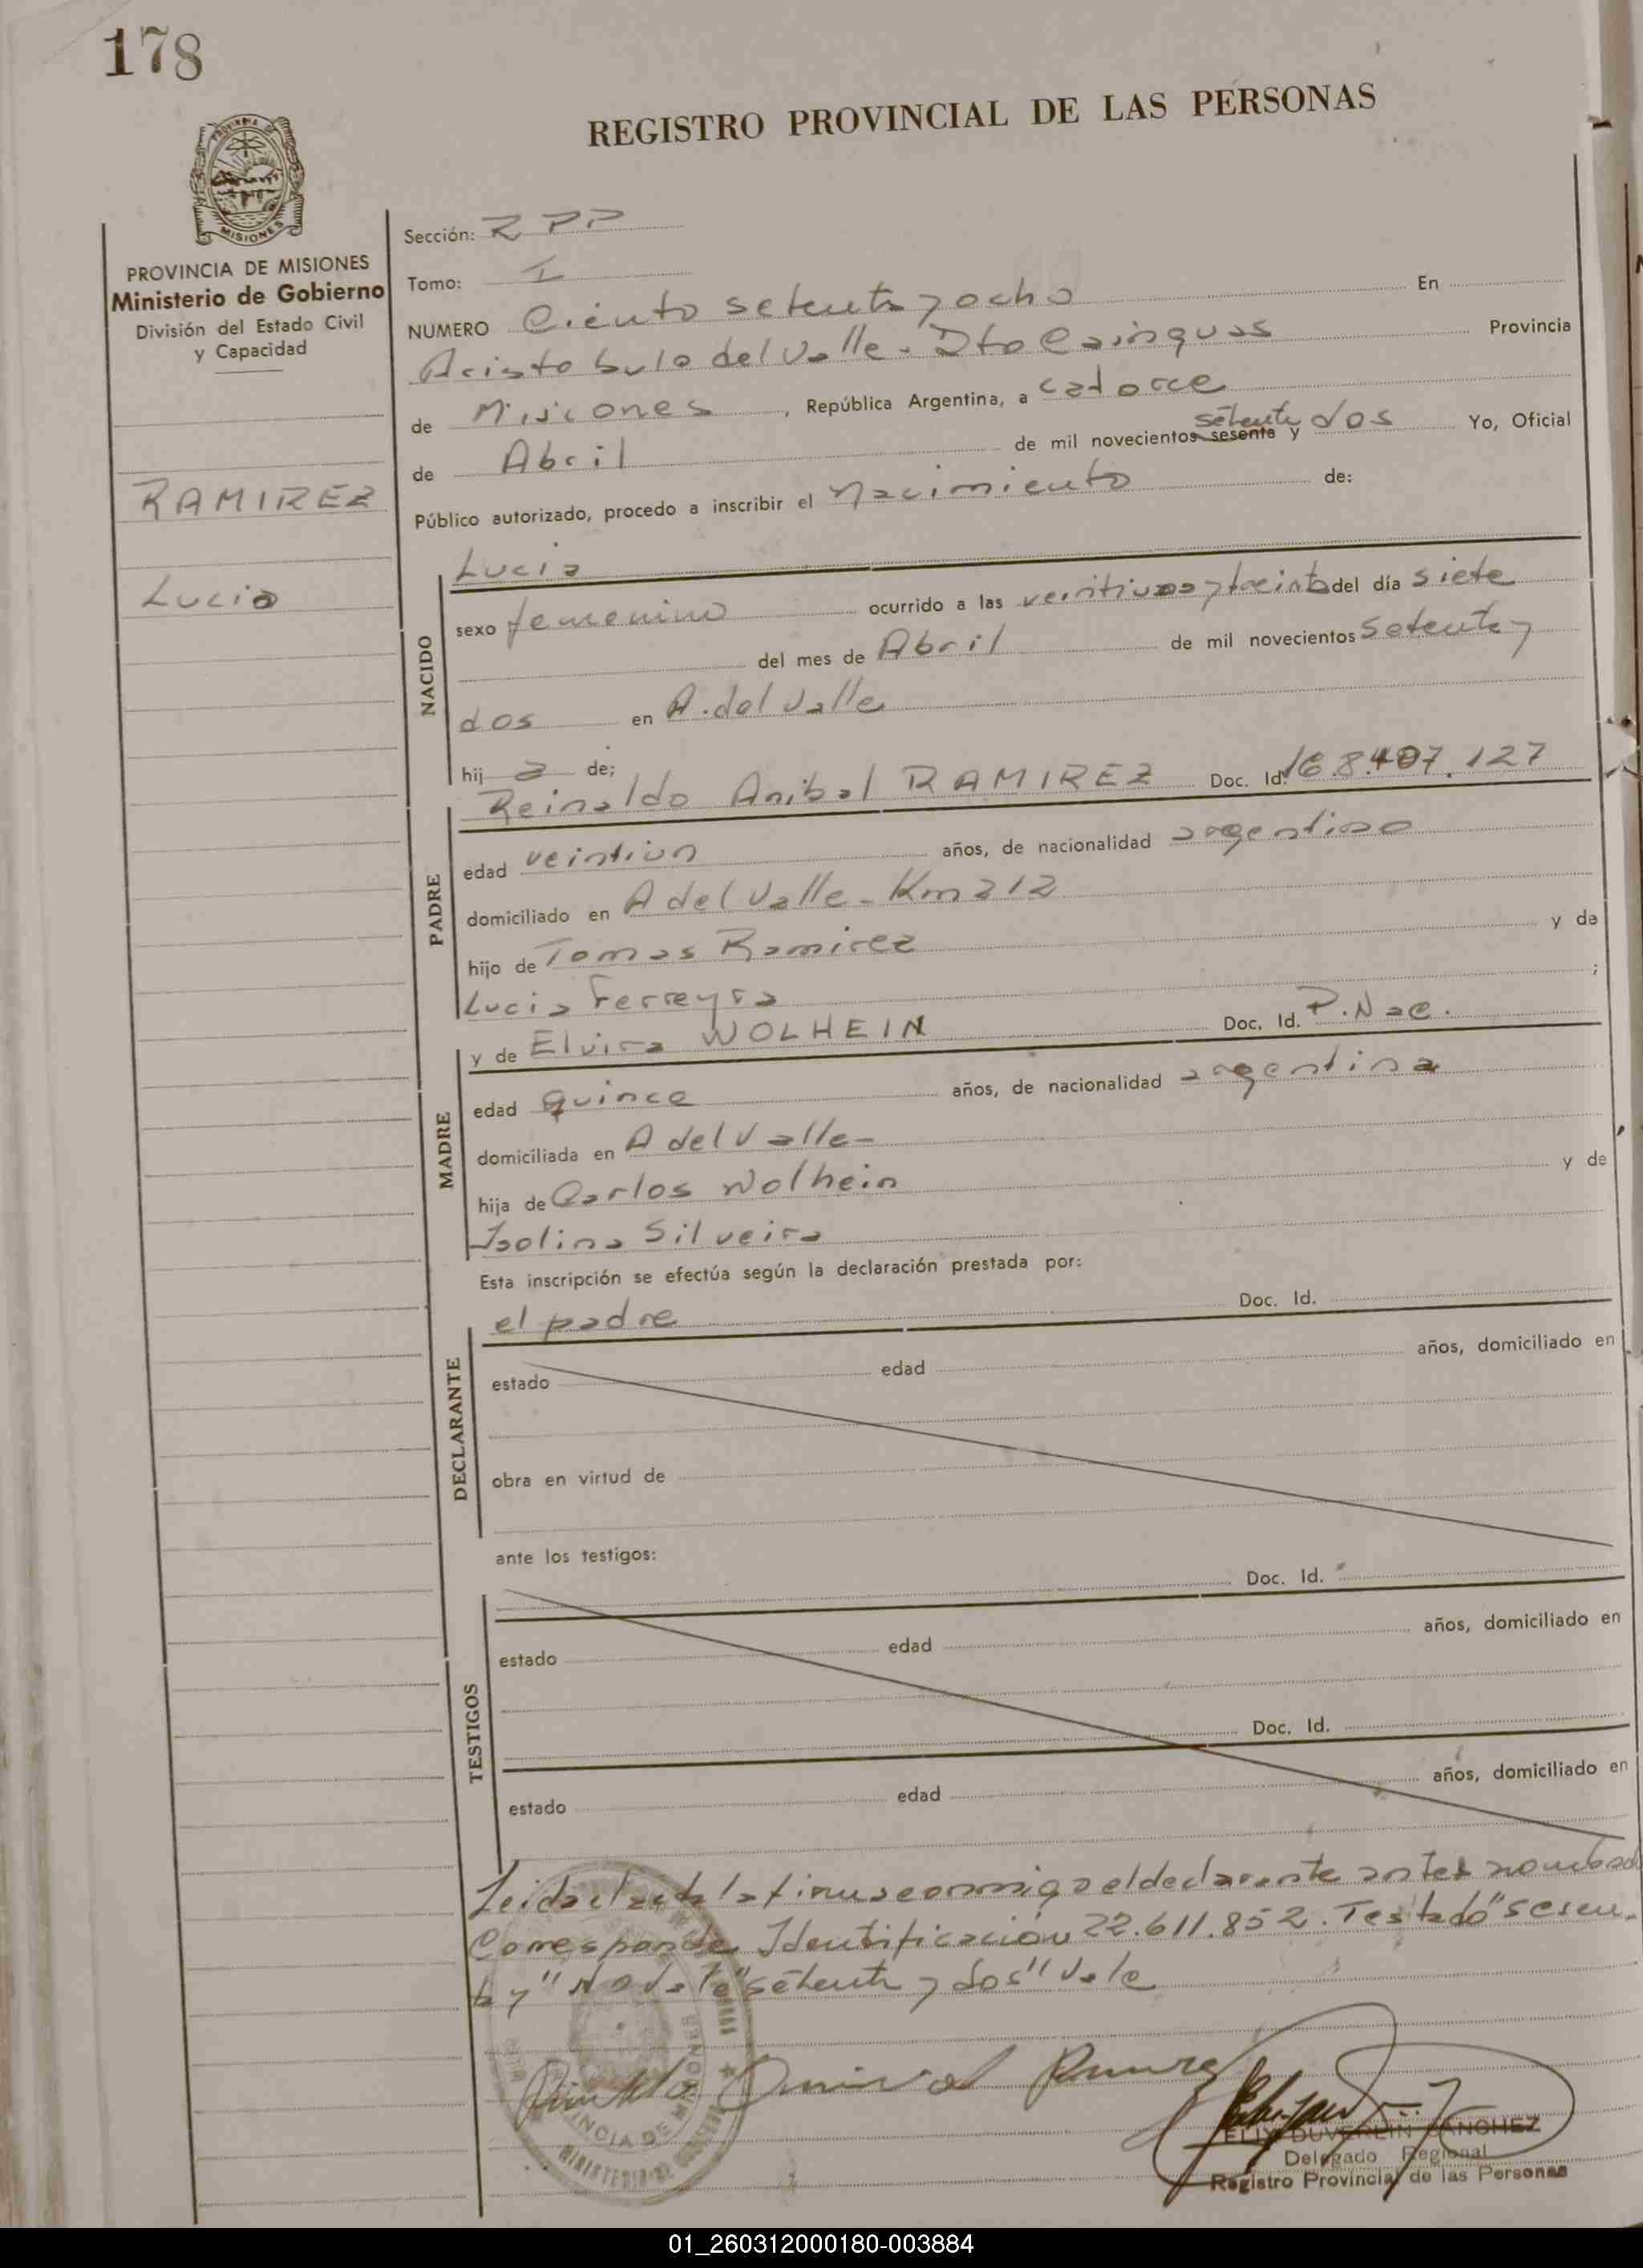 178
REGISTRO PROVINCIAL DE LAS PERSONAS
MISIONES
PROVINCIA DE MISIONES
Ministerio de Gobierno
División del Estado Civil
y Capacidad
RAMIREZ
Lucia
Sección: RPP
Tomo: I
NUMERO Ciento setenta y ocho En
Aristobulo del Valle - Dto Cainguas Provincia
de Misiones, República Argentina, a catorce
setenta
de Abril de mil novecientos sesenta y dos Yo, Oficial
Público autorizado, procedo a inscribir el Nacimiento de:
NACIDO
Lucia
sexo femenino ocurrido a las y treinta del día siete
del mes de Abril de mil novecientos setenta y
dos en A. del Valle
hij a de;
PADRE
Reinaldo Anibal RAMIREZ Doc. Id. 127
edad veintiun años, de nacionalidad argentino
domiciliado en A del Valle - Km 212
hijo de Tomas Ramirez y de
Lucia Ferreyra ;
MADRE
y de Elvira WOLHEIN Doc. Id. P. Nac.
edad quince años, de nacionalidad argentina
domiciliada en A del Valle -
hija de Carlos Wolhein y de
Isolina Silveira
Esta inscripción se efectúa según la declaración prestada por:
DECLARANTE
el padre Doc. Id.
estado edad años, domiciliado en
obra en virtud de
ante los testigos:
TESTIGOS
Doc. Id.
estado edad años, domiciliado en
Doc. Id.
estado edad años, domiciliado en
Leida el acta la firma conmigo el declarante antes
Corresponde Identificación 22.611.852. Testado "sesen-
ta y" No vale "setenta y dos" Vale
Anival
FELIX DUVERLIN SANCHEZ
Delegado Regional
Registro Provincial de las Personas
01_260312000180-003884